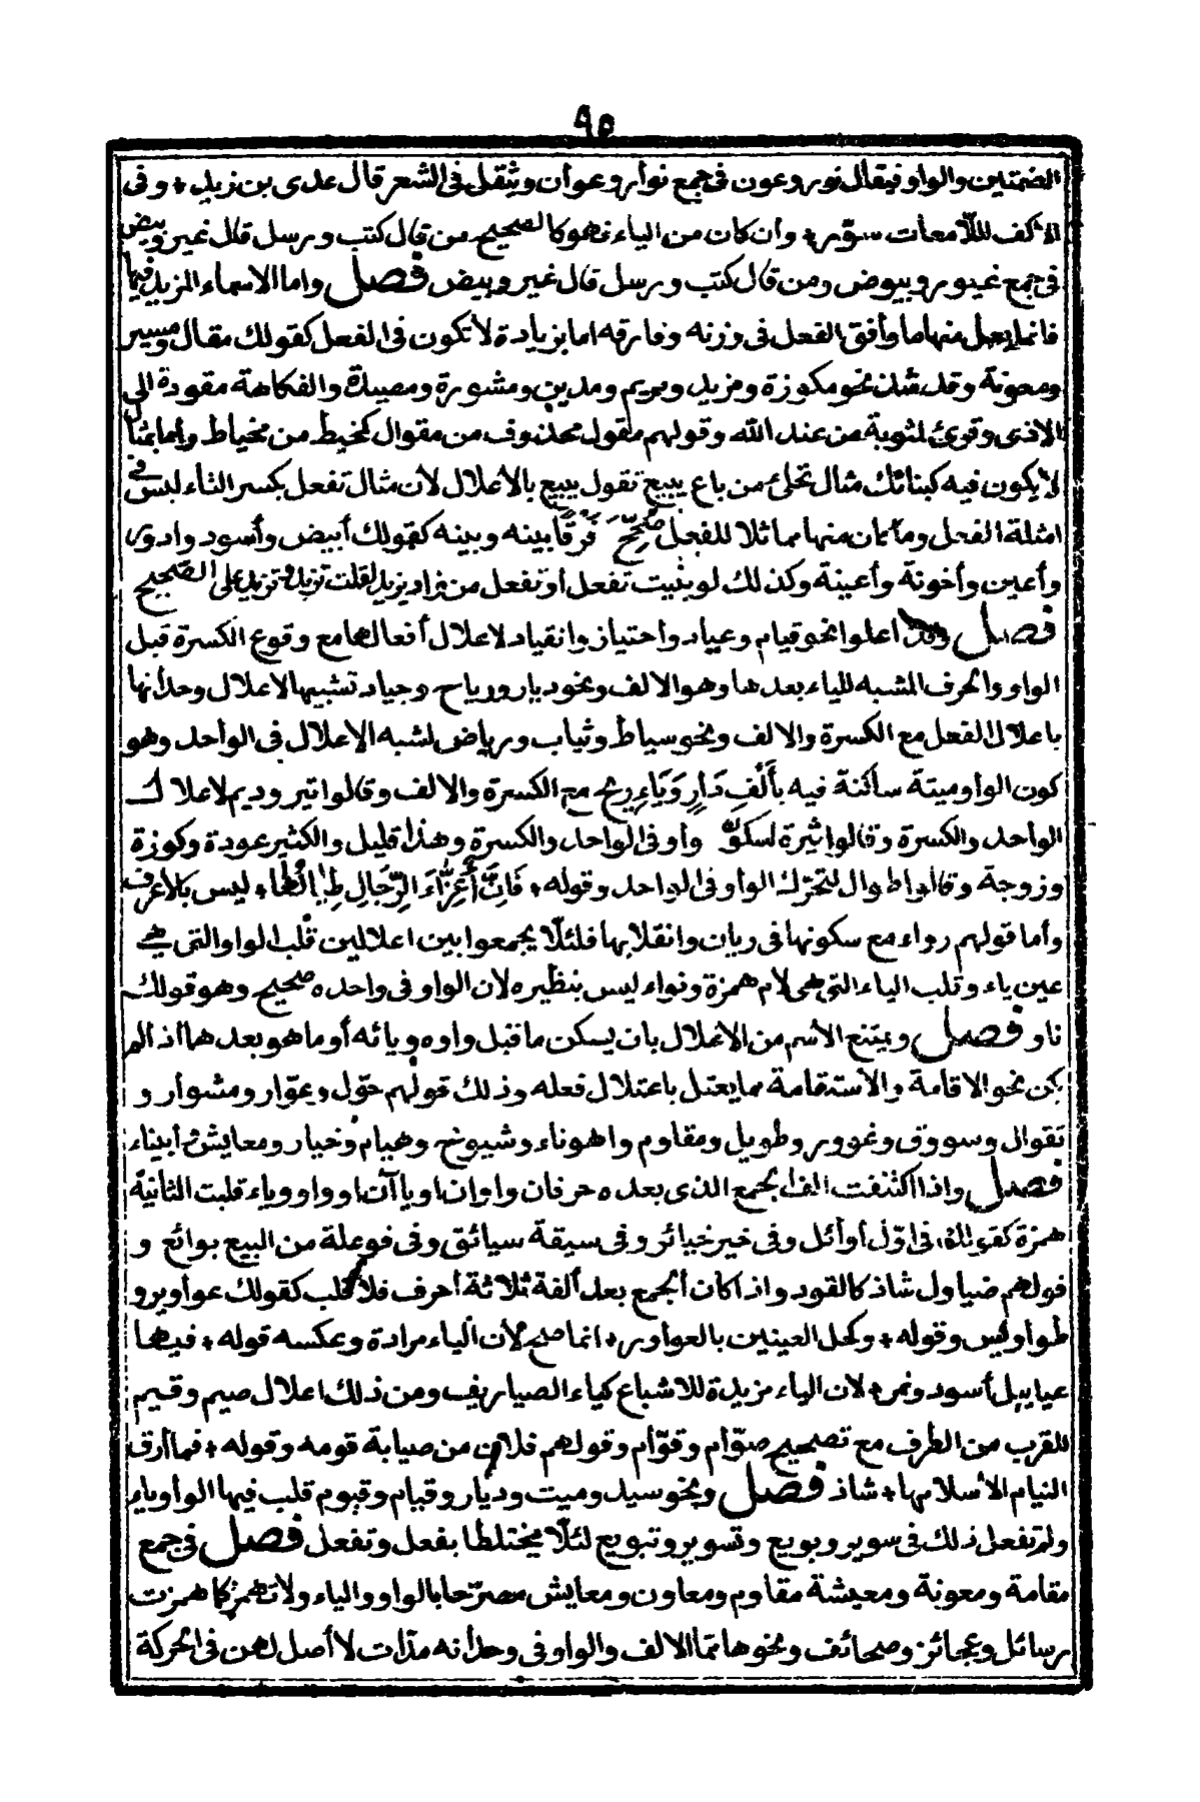 ٩٥
الضمتين والواو فيقال نور وعون فى جمع نوار وعوان ويثقل فى الشعر قال عدى بن زيد ، وفى
الاكف اللامعات سوّر ، وان كان من الياء فهو كالصحيح من قال كتب ورسل قال غير وبيض
فى جمع غيور وبيوض ومن قال كتب ورسل قال غير وبيض فصل واما الاسماء المزيد فيها
فانما يعل منها ما وافق الفعل فى وزنه وفارقه اما بزيادة لا تكون فى الفعل كقولك مقال ومسير
ومعونة وقد شذ نحو مكوزة ومزيد ومريم ومدين ومشورة ومصيدة والفكاهة مقودة الى
الاذى وقرئ لمثوبة من عند الله وقولهم مقول محذوف من مقوال كمخيط من مخياط واما بمثال
لا يكون فيه كبنائك مثال تحلئ من باع يبيع تقول تبيع بالاعلال لان مثال تفعل بكسر التاء ليس فى
امثلة الفعل وما كان منها مماثلا للفعل صُحِّحَ فَرْقًا بينه وبينه كقولك أبيض وأسود وادور
وأعين وأخونة وأعينة وكذلك لو بنيت تفعل أو تفعل من زاد يزيد لقلت تزيد وتزيد على الصّحيح
فصل وقد اعلوا نحو قيام وعياد واحتياز وانقياد لاعلال أفعالها مع وقوع الكسرة قبل
الواو والحرف المشبه للياء بعدها وهو الالف ونحو ديار ورياح وجياد تشبيها لاعلال وحدانها
باعلال الفعل مع الكسرة والالف ونحو سياط وثياب ورياض لشبه الاعلال فى الواحد وهو
كون الواو ميتة ساكنة فيه بأَلِف دَارٍ وَيَاءِ رِيح مع الكسرة والالف وقالوا تير وديم لاعلال
الواحد والكسرة وقالوا ثيرة لسكون الواو فى الواحد والكسرة وهذا قليل والكثير عودة وكوزة
وزوجة وقالوا طوال لتحرّك الواو فى الواحد وقوله ، فَاِنَّ أَعِزَّاءَ الرِّجَالِ طِيَالُهَا ، ليس بالاعرف
وأما قولهم رواء مع سكونها فى ريان وانقلابها فلئلّا يجمعوا بين اعلالين قلب الواو التى هى
عين ياء وقلب الياء التى هى لام همزة ونواء ليس بنظيره لان الواو فى واحده صحيح وهو قولك
ناو فصل ويمتنع الأسم من الاعلال بان يسكن ما قبل واوه ويائه أو ما هو بعدهما اذا لم
يكن نحو الاقامة والاستقامة مما يعتل باعتلال فعله وذلك قولهم حوّل وعوّار ومشوار و
تقوال وسووق وغوور وطويل ومقاوم واهوناء وشيوخ وهيام وخيار ومعايش وأبيناء
فصل واذا اكتنفت الف الجمع الذى بعده حرفان واوان او ياآن او واو وياء قلبت الثانية
همزة كقولك فى اوّل أوائل وفى خير خيائر وفى سيقة سيائق وفى فوعلة من البيع بوائع و
قولهم ضياول شاذ كالقود واذا كان الجمع بعد ألفة ثلاثة أحرف فلا قلب كقولك عواوير و
طواويس وقوله ، وكحل العينين بالعواور ، انما صح لأن الياء مرادة وعكسه قوله ، فيها
عياييل أسود ونمر ، لان الياء مزيدة للاشباع كياء الصياريف ومن ذلك اعلال صيم وقيم
للقرب من الطرف مع تصحيح صوّام وقوّام وقولهم فلان من صيابة قومه وقوله ، فما أرق
النيام الا سلامها ، شاذ فصل ونحو سيد وميت وديار وقيام وقيوم قلب فيها الواو ياء
ولم تفعل ذلك فى سوير وبويع وتسوير وتبويع لئلّا يختلطا بفعل وتفعل فصل فى جمع
مقامة ومعونة ومعيشة مقاوم ومعاون ومعايش مصرّحا بالواو والياء ولا تهمز كما همزت
رسائل وعجائز وصحائف ونحوها مما الالف والواو فى وحدانه مدّات لا أصل لهن فى الحركة